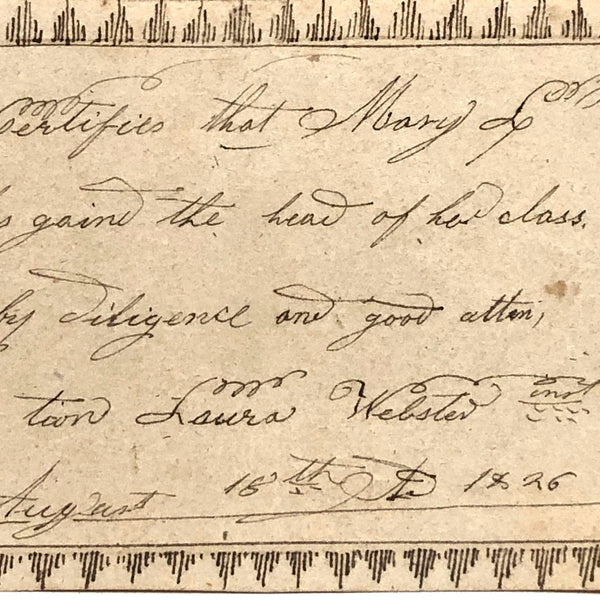 Certifies that Mary L
s gaind the head of her class.
by diligence and good atten,
tion Laura Webster inst
August 18th 1826